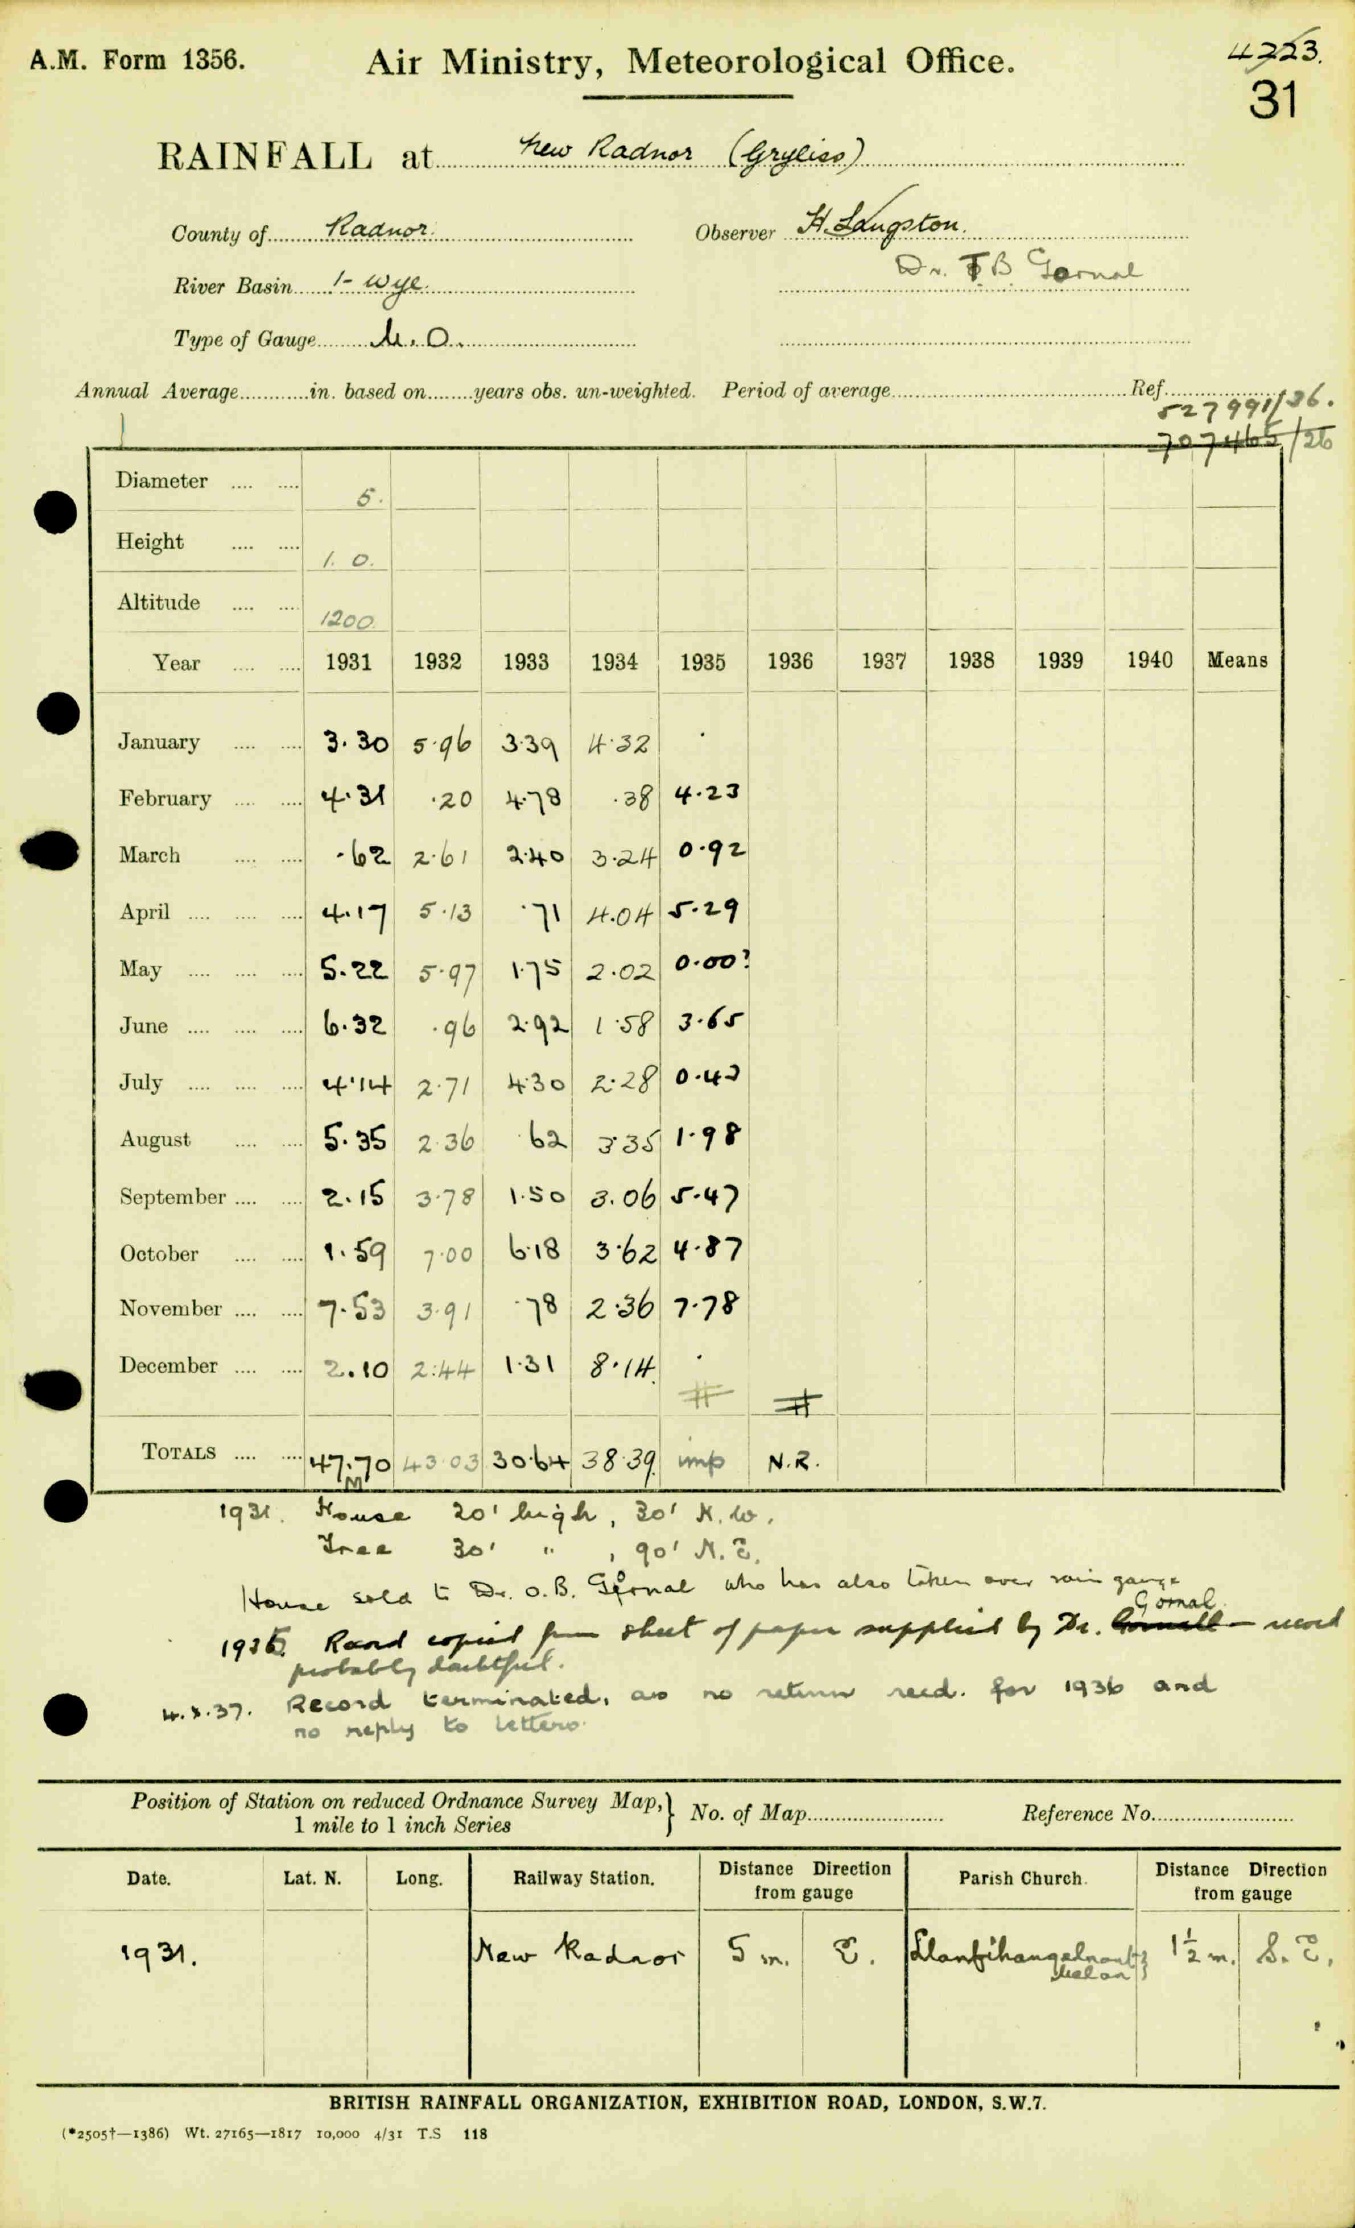 A.M. Form 1356.
Air Ministry, Meteorological Office.
4223.
31
RAINFALL at New Radnor (Gryliss)
County of Radnor. Observer H. Langston.
Dr. T B Gornal
River Basin 1- Wye.
Type of Gauge M.O.
Annual Average in. based on years obs. un-weighted. Period of average Ref.
527991/36.
707465/26
Diameter 5.
Height 1. 0.
Altitude 1200.
Year 1931 1932 1933 1934 1935 1936 1937 1938 1939 1940 Means
January 3.30 5.96 3.39 4.32 .
February 4.31 .20 4.78 .38 4.23
March .62 2.61 2.40 3.24 0.92
April 4.17 5.13 .71 4.04 5.29
May 5.22 5.97 1.75 2.02 0.00?
June 6.32 .96 2.92 1.58 3.65
July 4.14 2.71 4.30 2.28 0.42
August 5.35 2.36 .62 3.35 1.98
September 2.15 3.78 1.50 3.06 5.47
October 1.59 7.00 6.18 3.62 4.87
November 7.53 3.91 .78 2.36 7.78
December 2.10 2.44 1.31 8.14 .
TOTALS 47.70 43.03 30.64 38.39 imp N.R.
M
1931. House 20' high, 30' N.W.
Tree 30' " , 90' N.E.
House sold to Dr. O.B. Gornal who has also taken over rain gauge
Gornal.
1935. Record copied from sheet of paper supplied by Dr. Gornall – record
probably doubtful.
4.X.37. Record terminated, as no return recd. for 1936 and
no reply to letters.
Position of Station on reduced Ordnance Survey Map,
1 mile to 1 inch Series
No. of Map Reference No.
Date. Lat. N. Long. Railway Station. Distance Direction from gauge Parish Church. Distance Direction from gauge
1931. New Radnor 5 m. E. Llanfihangelnant Melan 1½ m. S.E.
BRITISH RAINFALL ORGANIZATION, EXHIBITION ROAD, LONDON, S.W.7.
(*2505†—1386) Wt. 27165—1817 10,000 4/31 T.S 118